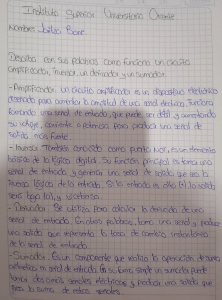 Instituto Superior Universitario Oriente.
Nombre: Joselias Bone.
Describa con sus palabras como funciona un circuito
amplificador, inversor, un derivador y un sumador.
- Amplificador: Un circuito amplificador es un dispositivo electrónico
diseñado para controlar la amplitud de una señal eléctrica. Funciona
tomando una señal de entrada, que puede ser débil y aumentando
su voltaje, corriente o potencia para producir una señal de
salida más fuerte.
- Inversor: También conocido como puerta NOT, es un elemento
básico de la lógica digital. Su función principal es tomar una
señal de entrada y generar una señal de salida que sea la
inversa lógica de la entrada. Si la entrada es alta (1) la salida
será baja (0) y viceversa.
- Derivador: Se utiliza para calcular la derivada de una
señal de entrada. En otras palabras, toma una señal y produce
una salida que representa la tasa de cambio instantánea
de la señal de entrada.
- Sumador: Es un componente que realiza la operación de suma
aritmética en señal de entrada. En su forma simple un sumador puede
sumar dos señales eléctricas y producir una salida que
sea la suma de estas señales.